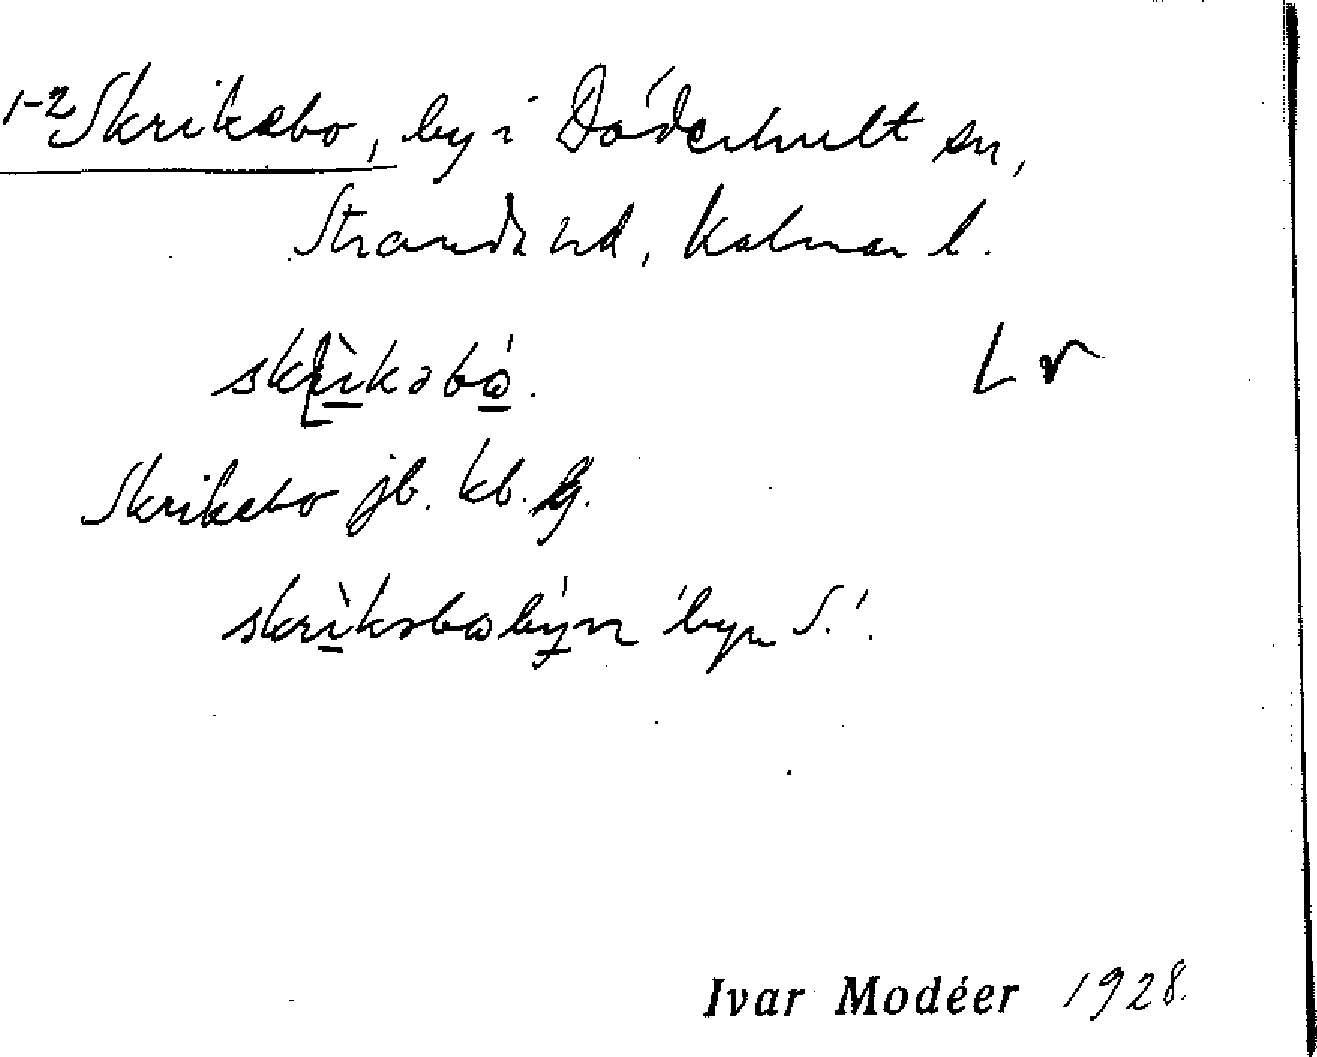 1-2 Skrikebo, by i Döderhult sn,
Strands hd, Kalmar l.
skrìkəbó.
L v
Skrikebo jb. kb. Gg.
skrìkəbobýn 'byn S.'.
Ivar Modéer 1928.